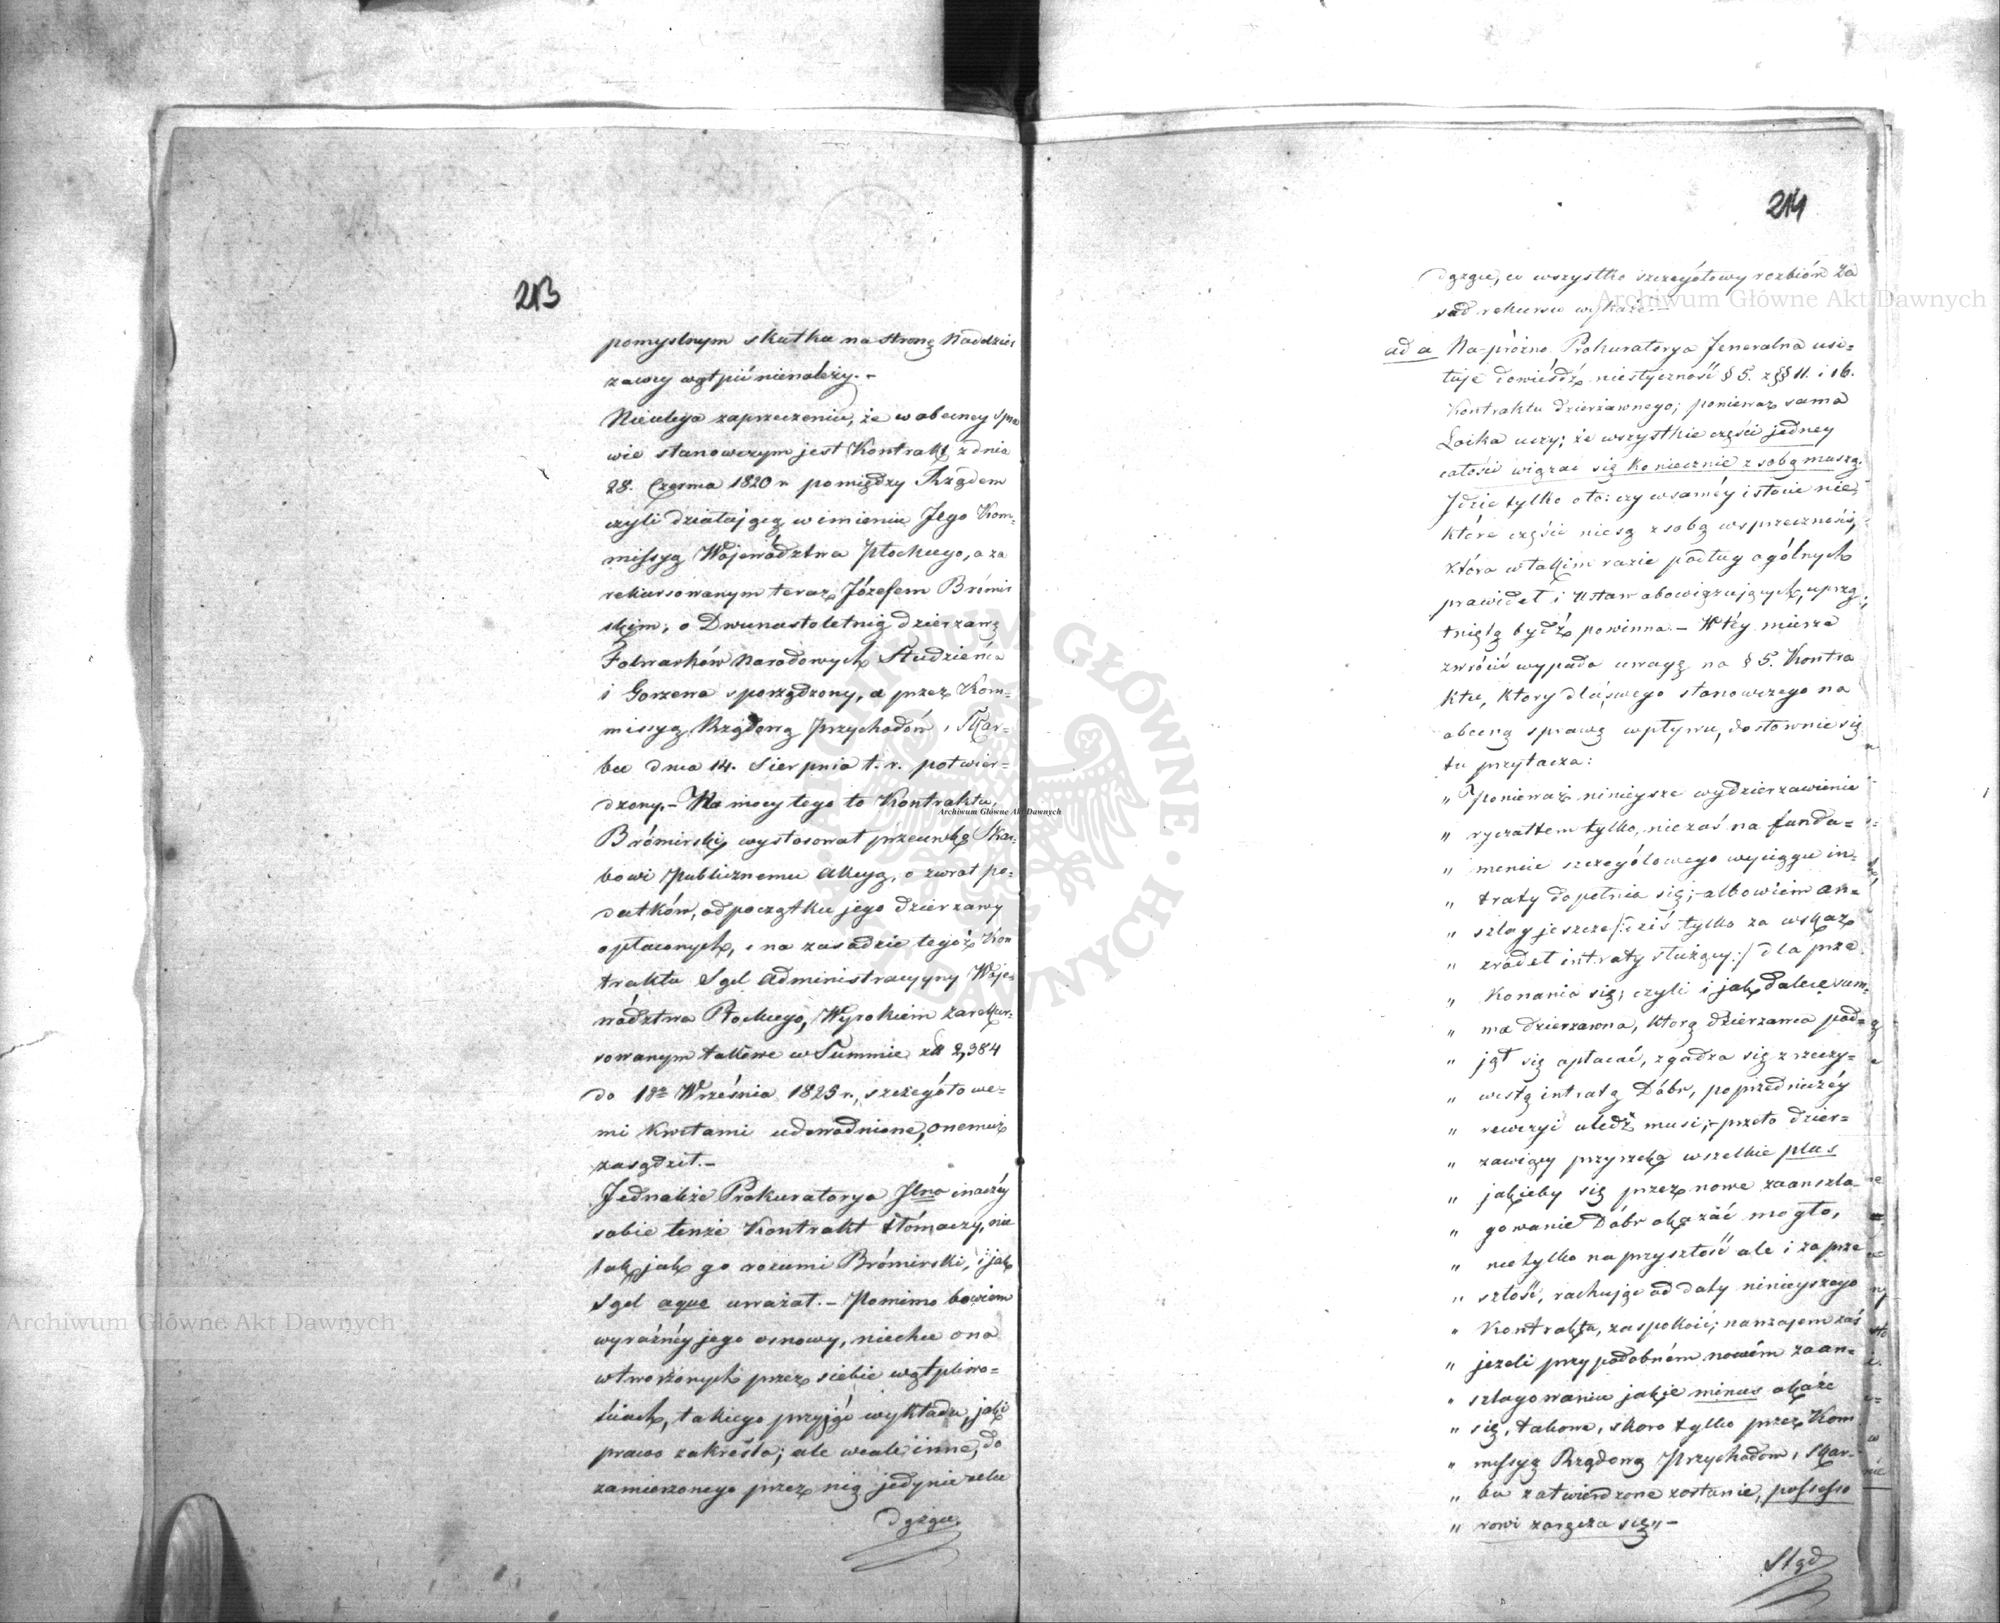 213
pomyślnym skutku na stronę Naddzier
zawcy wątpić nienależy.-
Nieulega zaprzeczeniu, że w obecney spra
wie stanowczym jest Kontrakt z dnia
28. Czerwca 1820 r. pomiędzy Rządem
czyli działającą w imieniu Jego Kom-
missyą Województwa Płockiego, a za
rekursowanym teraz Józefem Brómir
skim, o Dwunastoletnią dzierzawę
Folwarków Narodowych Studzieńca
i Gorzewa sporządzony, a przez Kom-
missyą Rządową Przychodów i Skar-
bu dnia 14. Sierpnia t. r. potwier-
dzony.- Na mocy tego to Kontraktu,
Brómirski wystosował przeciwko Skar-
bowi Publicznemu Akcyą, o zwrot po-
datków, od początku jego dzierzawy
opłaconych, i na zasadzie tegoż Kon
traktu Sąd Administracyyny Woje-
wództwa Płockiego, Wyrokiem zarekur-
sowanym takowe w Summie złł 2,384
do 1go Września 1825 r., szczegółowe-
mi Kwitami udowodnione, onemuż
zasądził.-
Jednakże Prokuratorya Jlna inaczéy
sobie tenże Kontrakt tłómaczy, nie
tak jak go rozumi Brómirski, i jak
Sąd aquo uważał.- Pomimo bowiem
wyraźnéy jego osnowy, niechce ona
w tworzonych przez siebie wątpliwo-
ściach, takiego przyjąć wykładu, jaki
prawo zakreśla; ale wcale inne, do
zamierzonego przez nią jedynie celu
dążące,
214
dążące, co wszystko szczegółowy rozbiór Za
sad rekursu wykaże.-
ad a Na-próżno Prokuratorya Jeneralna usi-
łuje dowieśdź niestyczność § 5. z §§ 11. i 16.
Kontraktu dzierżawnego; ponieważ sama
Loika uczy; że wszystkie części jedney
całości wiązać się koniecznie z sobą muszą.
Jdzie tylko oto: czy w saméy istocie nie-
które części niesą z sobą w sprzeczności,
która w takim razie podług ogólnych
prawideł i Ustaw obowiązujących, uprzą-
tniętą bydź powinna.- W téy mierze
zwrócić wypada uwagę na § 5. Kontra
ktu, który dla swego stanowczego na
obecną sprawę wpływu, dosłownie się
tu przytacza:
„ Ponieważ ninieysze wydzierzawienie
„ ryczałtem tylko, nie zaś na funda-
„ mencie szczegółowego wyciągu in-
„ traty dopełnia się; albowiem an-
„ szlag jeszcze /: dziś tylko za wskaz
„ źródeł intraty służący :/ dla prze
„ konania się; czyli i jak dalece sum-
„ ma dzierzawna, którą dzierzawca pod-
„ jął się opłacać, zgadza się z rzeczy-
„ wistą intratą Dóbr, poprzedniczéy
„ rewizyi uledz musi;- przeto dzier-
„ zawiący przyrzeka wszelkie plus
„ jakieby się przez nowe zaanszla
„ gowanie Dóbr okazać mogło,
„ nietylko na przyszłość ale i za prze
„ szłość, rachując od daty ninieyszego
„ Kontraktu, zaspokoić; nawzajem zaś
„ jezeli przy podobném nowém zaan-
„ szlagowaniu jakie minus okaże
„ się, takowe, skoro tylko przez Kom
„ missyą Rządową Przychodów i Skar-
„ bu zatwierdzone zostanie, possesso
„ rowi zaręcza się„-
Stąd